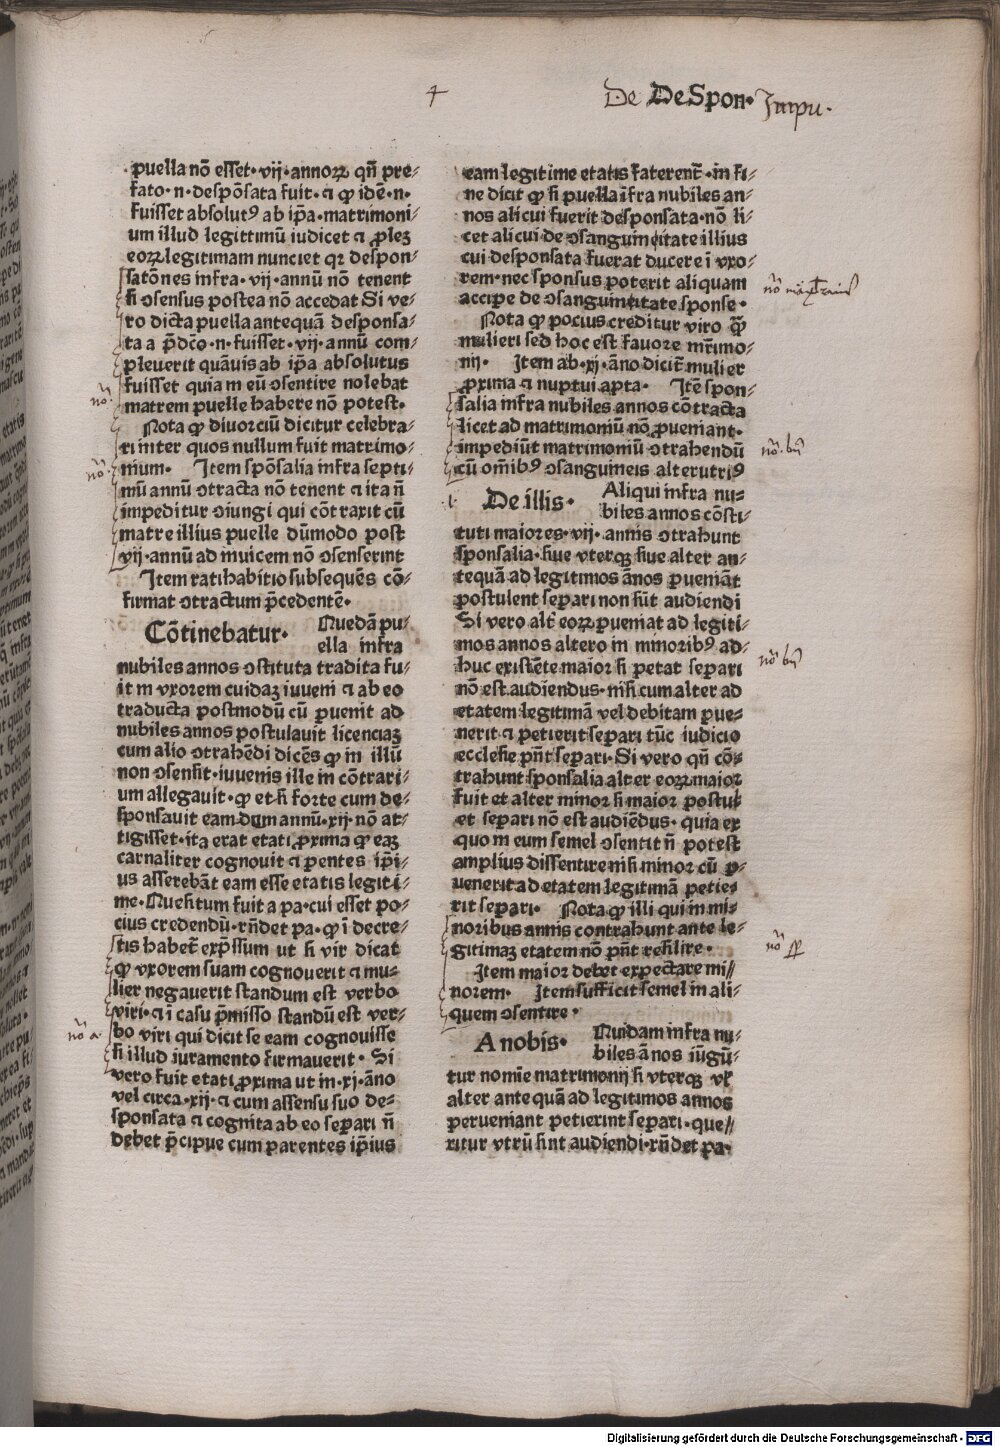 4
De DeSpon· Impu·
puella nō esset· vij· annoꝝ qn̄ pre⸗
fato· n· despōsata fuit· ⁊ ꝙ idē· n·
fuisset absolutꝰ ab ip̄a· matrimoni⸗
um illud legittimū iudicet ⁊ ꝓlez
eoꝝ legitimam nunciet qꝛ despon⸗
satōnes infra· vij· annū nō tenent
si ↄsensus postea nō accedat Si ve⸗
ro dicta puella antequā desponsa⸗
ta a p̄dc̄o· n· fuisset· vij· annū com⸗
pleuerit quāuis ab ip̄a absolutus
fuisset quia in eū ↄsentire nolebat
matrem puelle habere nō potest·
Nota ꝙ diuorciū dicitur celebra⸗
ri inter quos nullum fuit matrimo⸗
nium· Item spōsalia infra septi⸗
mū annū ↄtracta nō tenent ⁊ ita n̄
impeditur ↄiungi qui cōtraxit cū
matre illius puelle dūmodo post
vij· annū ad inuicem nō ↄsenserint
Item ratihabitio subsequēs cō⸗
firmat ↄtractum p̄cedentē·
Cōtinebatur· Quedā pu⸗
ella infra
nubiles annos ↄstituta tradita fu⸗
it in vxorem cuidaꝫ iuueni ⁊ ab eo
traducta postmodū cū ꝑuenit ad
nubiles annos postulauit licenciaꝫ
cum alio ↄtrahēdi dicēs ꝙ in illū
non ↄsensit· iuuenis ille in cōtrari⸗
um allegauit· ꝙ et si forte cum de⸗
sponsauit eam dum annū· xij· nō at⸗
tigisset· ita erat etati ꝓxima ꝙ eaꝫ
carnaliter cognouit ⁊ ꝑentes ip̄i⸗
us asserebāt eam esse etatis legiti⸗
me· Quesitum fuit a pa· cui esset po⸗
cius credendū· rn̄det pa· ꝙ ī decre⸗
tis habet᷑ exp̄ssum ut si vir dicat
ꝙ vxorem suam cognouerit ⁊ mu⸗
lier negauerit standum est verbo
viri· ⁊ ī casu p̄misso standū est ver⸗
bo viri qui dicit se eam cognouisse
si illud iuramento firmauerit· Si
vero fuit etati ꝓxima ut in· xj· āno
vel circa· xij· ⁊ cum assensu suo de⸗
sponsata ⁊ cognita ab eo separi n̄
debet p̄cipue cum parentes ip̄ius
eam legitime etatis faterent᷑· in fi⸗
ne dicit ꝙ si puella īfra nubiles an⸗
nos alicui fuerit desponsata· nō li⸗
cet alicui de ↄsanguinitate illius
cui desponsata fuerat ducere ī vxo⸗
rem· nec sponsus poterit aliquam
accipe de ↄsanguinitate sponse·
Nota ꝙ pocius creditur viro ꝙ̄
mulieri sed hoc est fauore mr̄imo⸗
nij· Item ab· xj· āno dicit᷑ mulier
ꝓxima ⁊ nuptui apta· Itē spon⸗
salia infra nubiles annos cōtracta
licet ad matrimoniū nō ꝑueniant·
impediūt matrimoniū ↄtrahendū
cū om̄ibꝰ ↄsanguineis alterutriꝰ
De illis· Aliqui infra nu⸗
biles annos cōsti⸗
tuti maiores· vij· annis ↄtrahunt
sponsalia· siue vterqꝫ siue alter an⸗
tequā ad legitimos ānos ꝑueniāt
postulent separi non sūt audiendi
Si vero alt᷑ eoꝝ ꝑueniat ad legiti⸗
mos annos altero in minoribꝰ ad⸗
huc existēte maior si petat separi
nō est audiendus· nisi cum alter ad
etatem legitimā vel debitam ꝑue⸗
nerit ⁊ petierit separi tūc iudicio
ecclesie pn̄t separi· Si vero qn̄ cō⸗
trahunt sponsalia alter eoꝝ maior
fuit et alter minor si maior postul⸗
et separi nō est audiēdus· quia ex
quo in eum semel ↄsentit n̄ potest
amplius dissentire nisi minor cū ꝑ⸗
uenerit ad etatem legitimā petie⸗
rit separi· Nota ꝙ illi qui in mi⸗
noribus annis contrahunt ante le⸗
gitimaꝫ etatem nō pn̄t resilire·
Item maior debet expectare mi⸗
norem· Item sufficit semel in ali⸗
quem ↄsentire·
A nobis· Quidam infra nu⸗
biles ānos iūgū⸗
tur nomīe matrimonij si vterqꝫ vl̄
alter ante quā ad legitimos annos
perueniant petierint separi· que⸗
ritur vtrū sint audiendi· rn̄det pa·
Digitalisierung gefördert durch die Deutsche Forschungsgemeinschaft - DFG